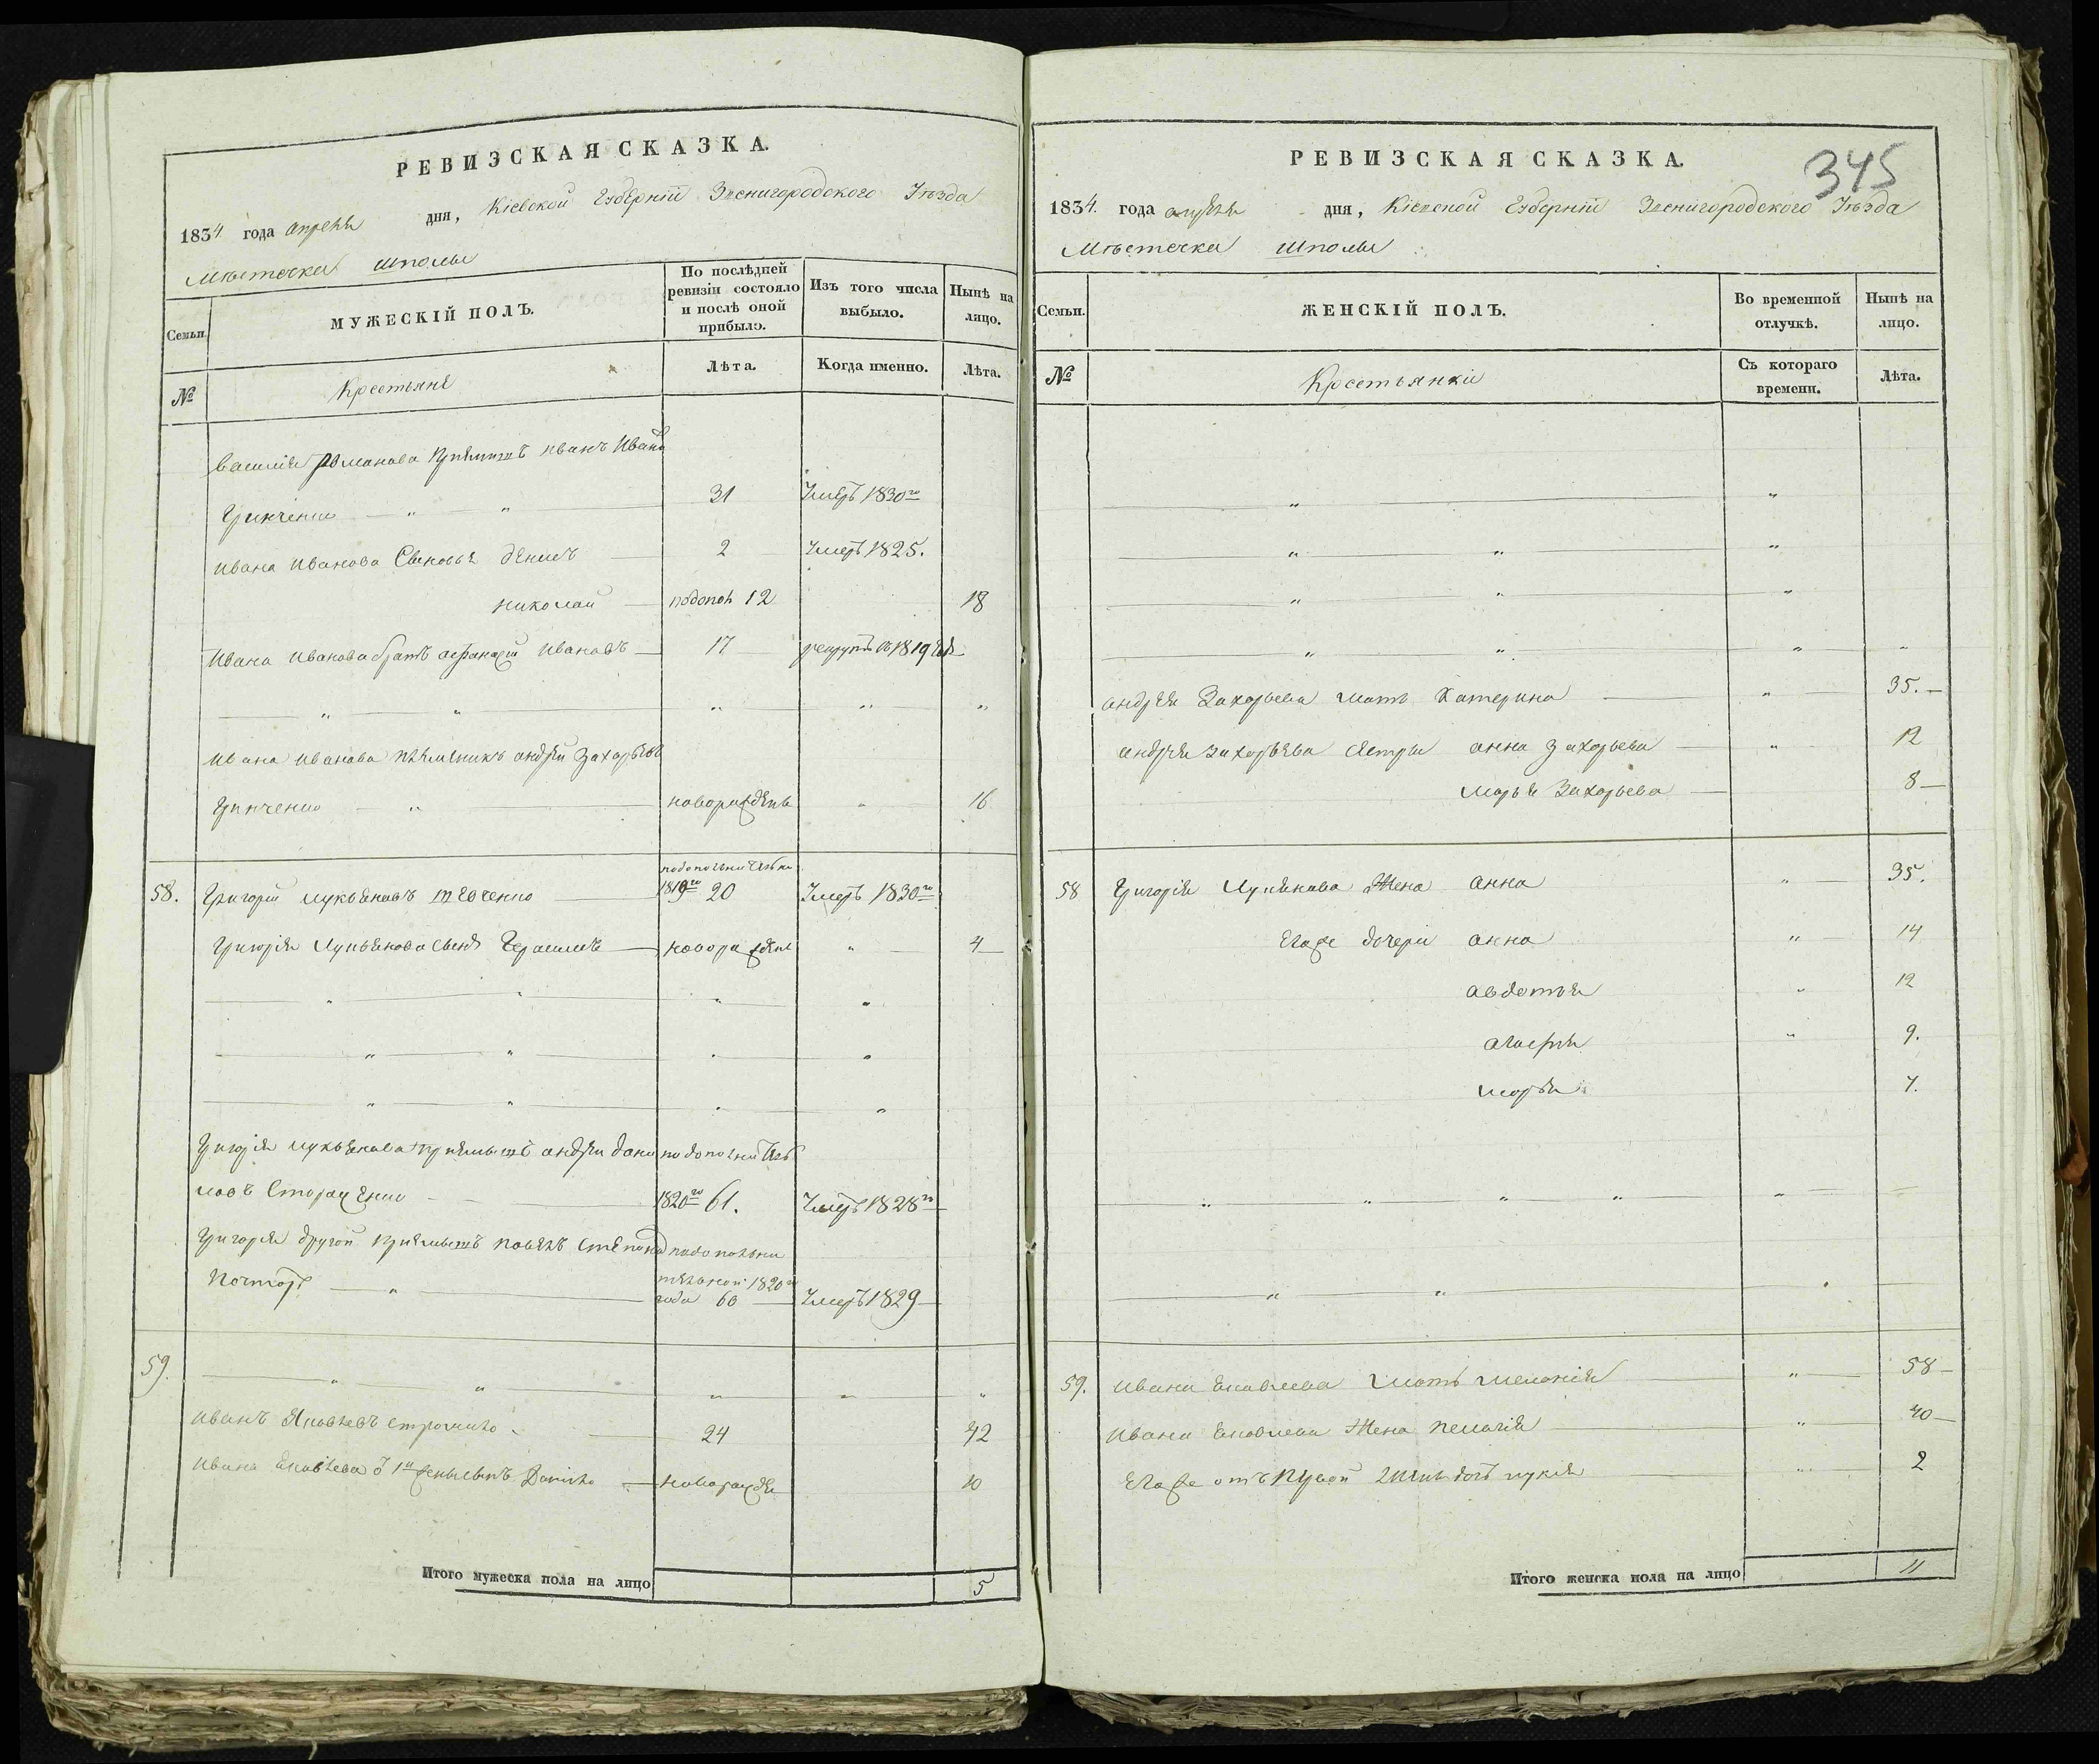 РЕВИЗСКАЯ СКАЗКА.
1834. года апреля дня, Кіевской Губерніи Звенигородского Уѣзда
Мѣстечка Шполы
Семьи.
МУЖЕСКІЙ ПОЛЪ.
По послѣдней ревизіи состояло и послѣ оной прибыло.
Изъ того числа выбыло.
Нынѣ на лицо.
№
Крестьяне
Лѣта.
Когда именно.
Лѣта.
Василія Романова Пріемышъ Иванъ Ивановъ
Гринченко " " 31 Умеръ 1830го
Ивана Иванова Сыновья Денисъ 2 Умеръ 1825.
Николай 12 18
Ивана Иванова братъ Афанасій Ивановъ 17 рекрутъ въ 1819
" " " " "
Ивана Иванова племенникъ андрей Захарьевъ
Гринченко " новорожденъ " 16
58. Григорій Лукьяновъ 1819го 20 Умеръ 1830го
Григорія Лукьянова Сынъ Герасимъ новорожденъ " 4
" " " "
" " " "
" " " "
Григорія Лукьянова пріемышъ андрей Дани
ловъ 1820го 61. Умеръ 1828го
Григорія другой пріемышъ Павелъ Степанов
" 1820го года 60 Умеръ 1829
59. " " " " "
Иванъ Яковлевъ 24 42
Ивана Яковлева о 1й жены сынъ новорожде 10
Итого мужеска пола на лицо 5
РЕВИЗСКАЯ СКАЗКА.
345
1834. года апреля дня, Кіевской Губерніи Звенигородского Уѣзда
Мѣстечка Шполы
Семьи.
ЖЕНСКІЙ ПОЛЪ.
Во временной отлучкѣ.
Нынѣ на лицо.
№
Крестьянки
Съ котораго времени.
Лѣта.
" "
" " "
" " "
" " " "
андрея Захарьева мать Катерина " 35.
андрея Захарьева сестры анна Захарьева " 12
Марья Захарьева 8
58 Григорія Лукьянова Жена Анна " 35.
Егоже дочери анна " 14
авдотья " 12
" 9.
марья 7.
" " " " "
" "
59. Ивана Яковлева Мать Меланія " 58
Ивана Яковлева Жена Пелагія " 40
Егоже отъ Первой 2
Итого женска пола на лицо 11